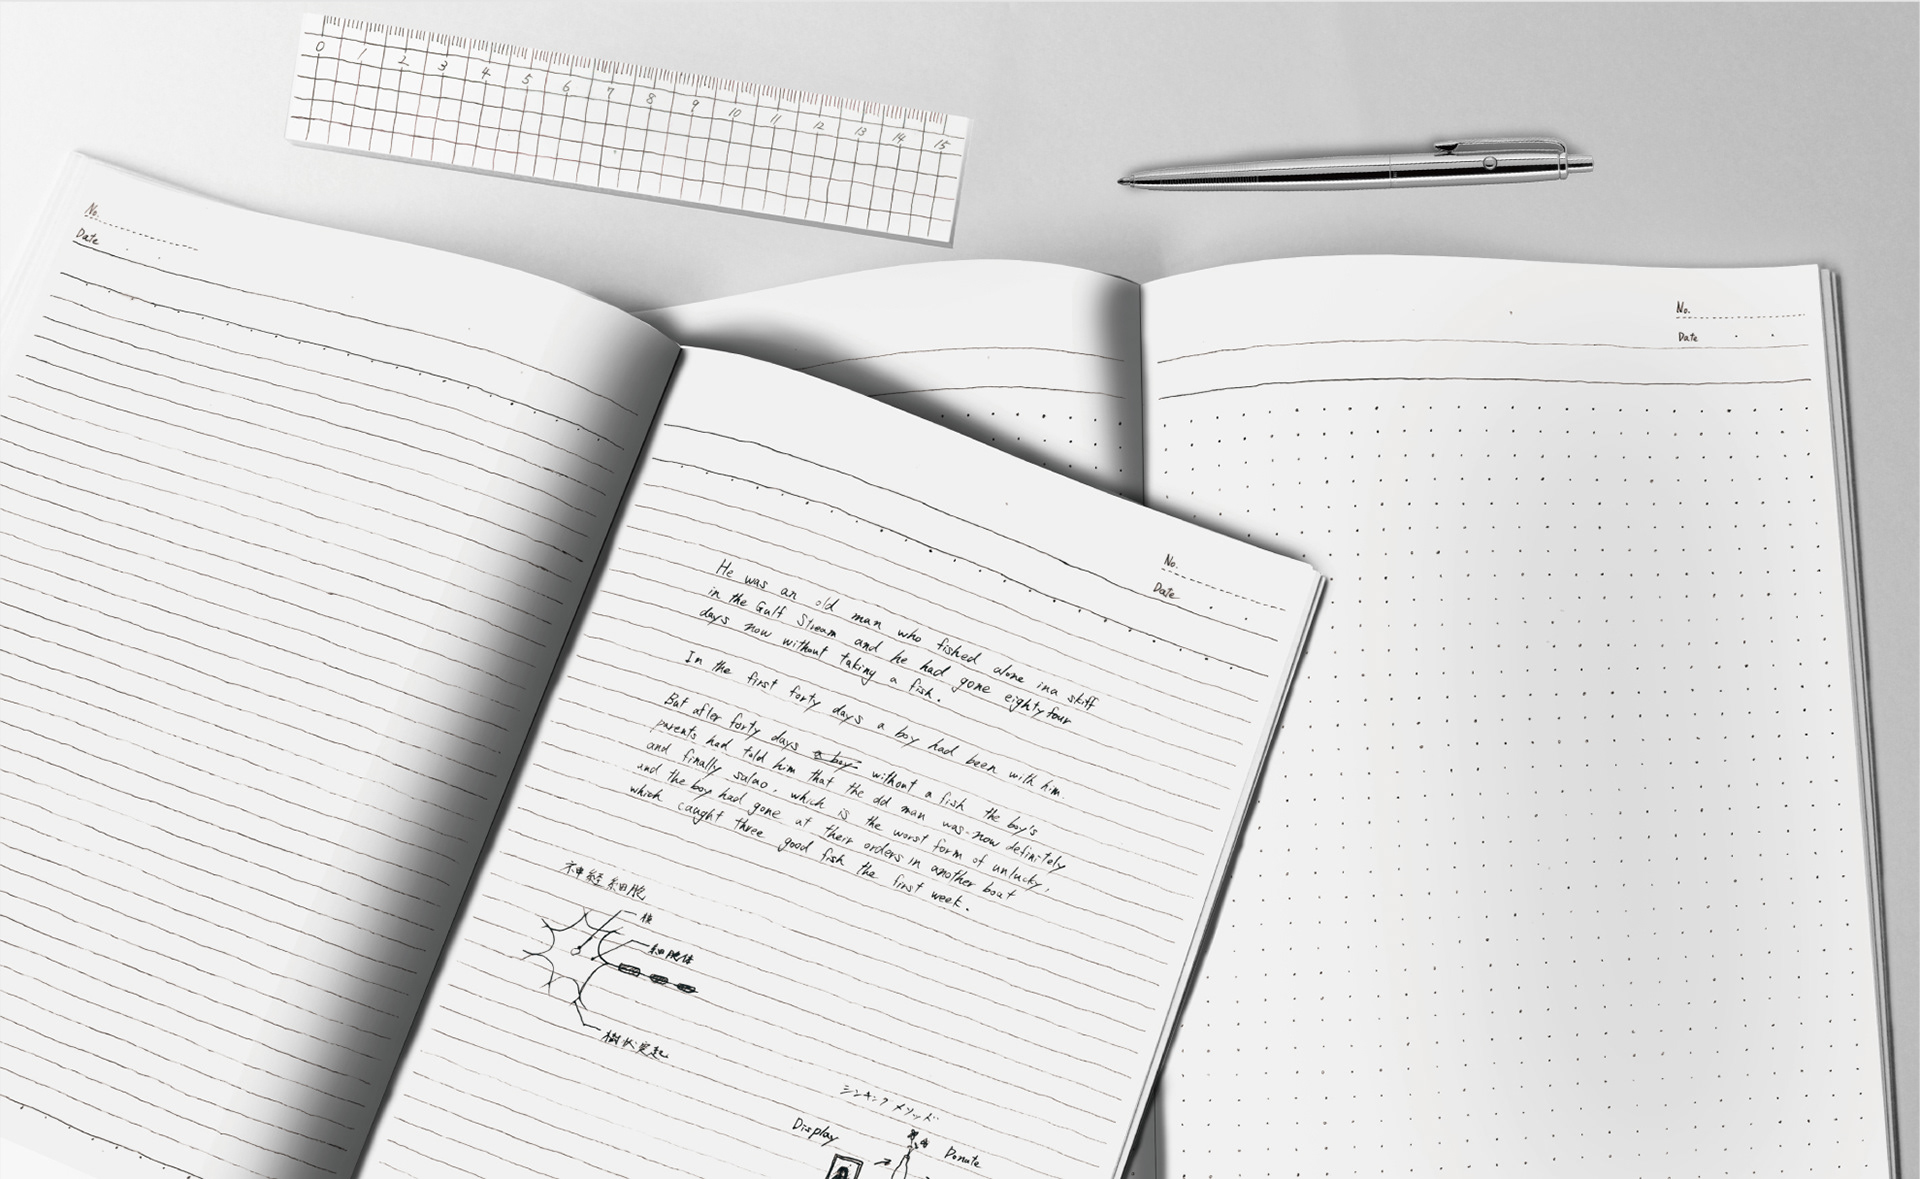 0 1 2 3 4 5 6 7 8 9 10 11 12 13 14 15
No.
Date
No.
Date
No.
Date
He was an old man who fished alone ina skiff
in the Gulf Stream and he had gone eighty four
days now without taking a fish.
In the first forty days a boy had been with him.
But after forty days a boy without a fish the boy's
parents had told him that the old man was now definitely
and finally salao, which is the worst form of unlucky,
and the boy had gone at their orders in another boat
which caught three good fish the first week.
神経細胞
核
細胞体
樹状突起
シンキングメソッド
Display
Donate